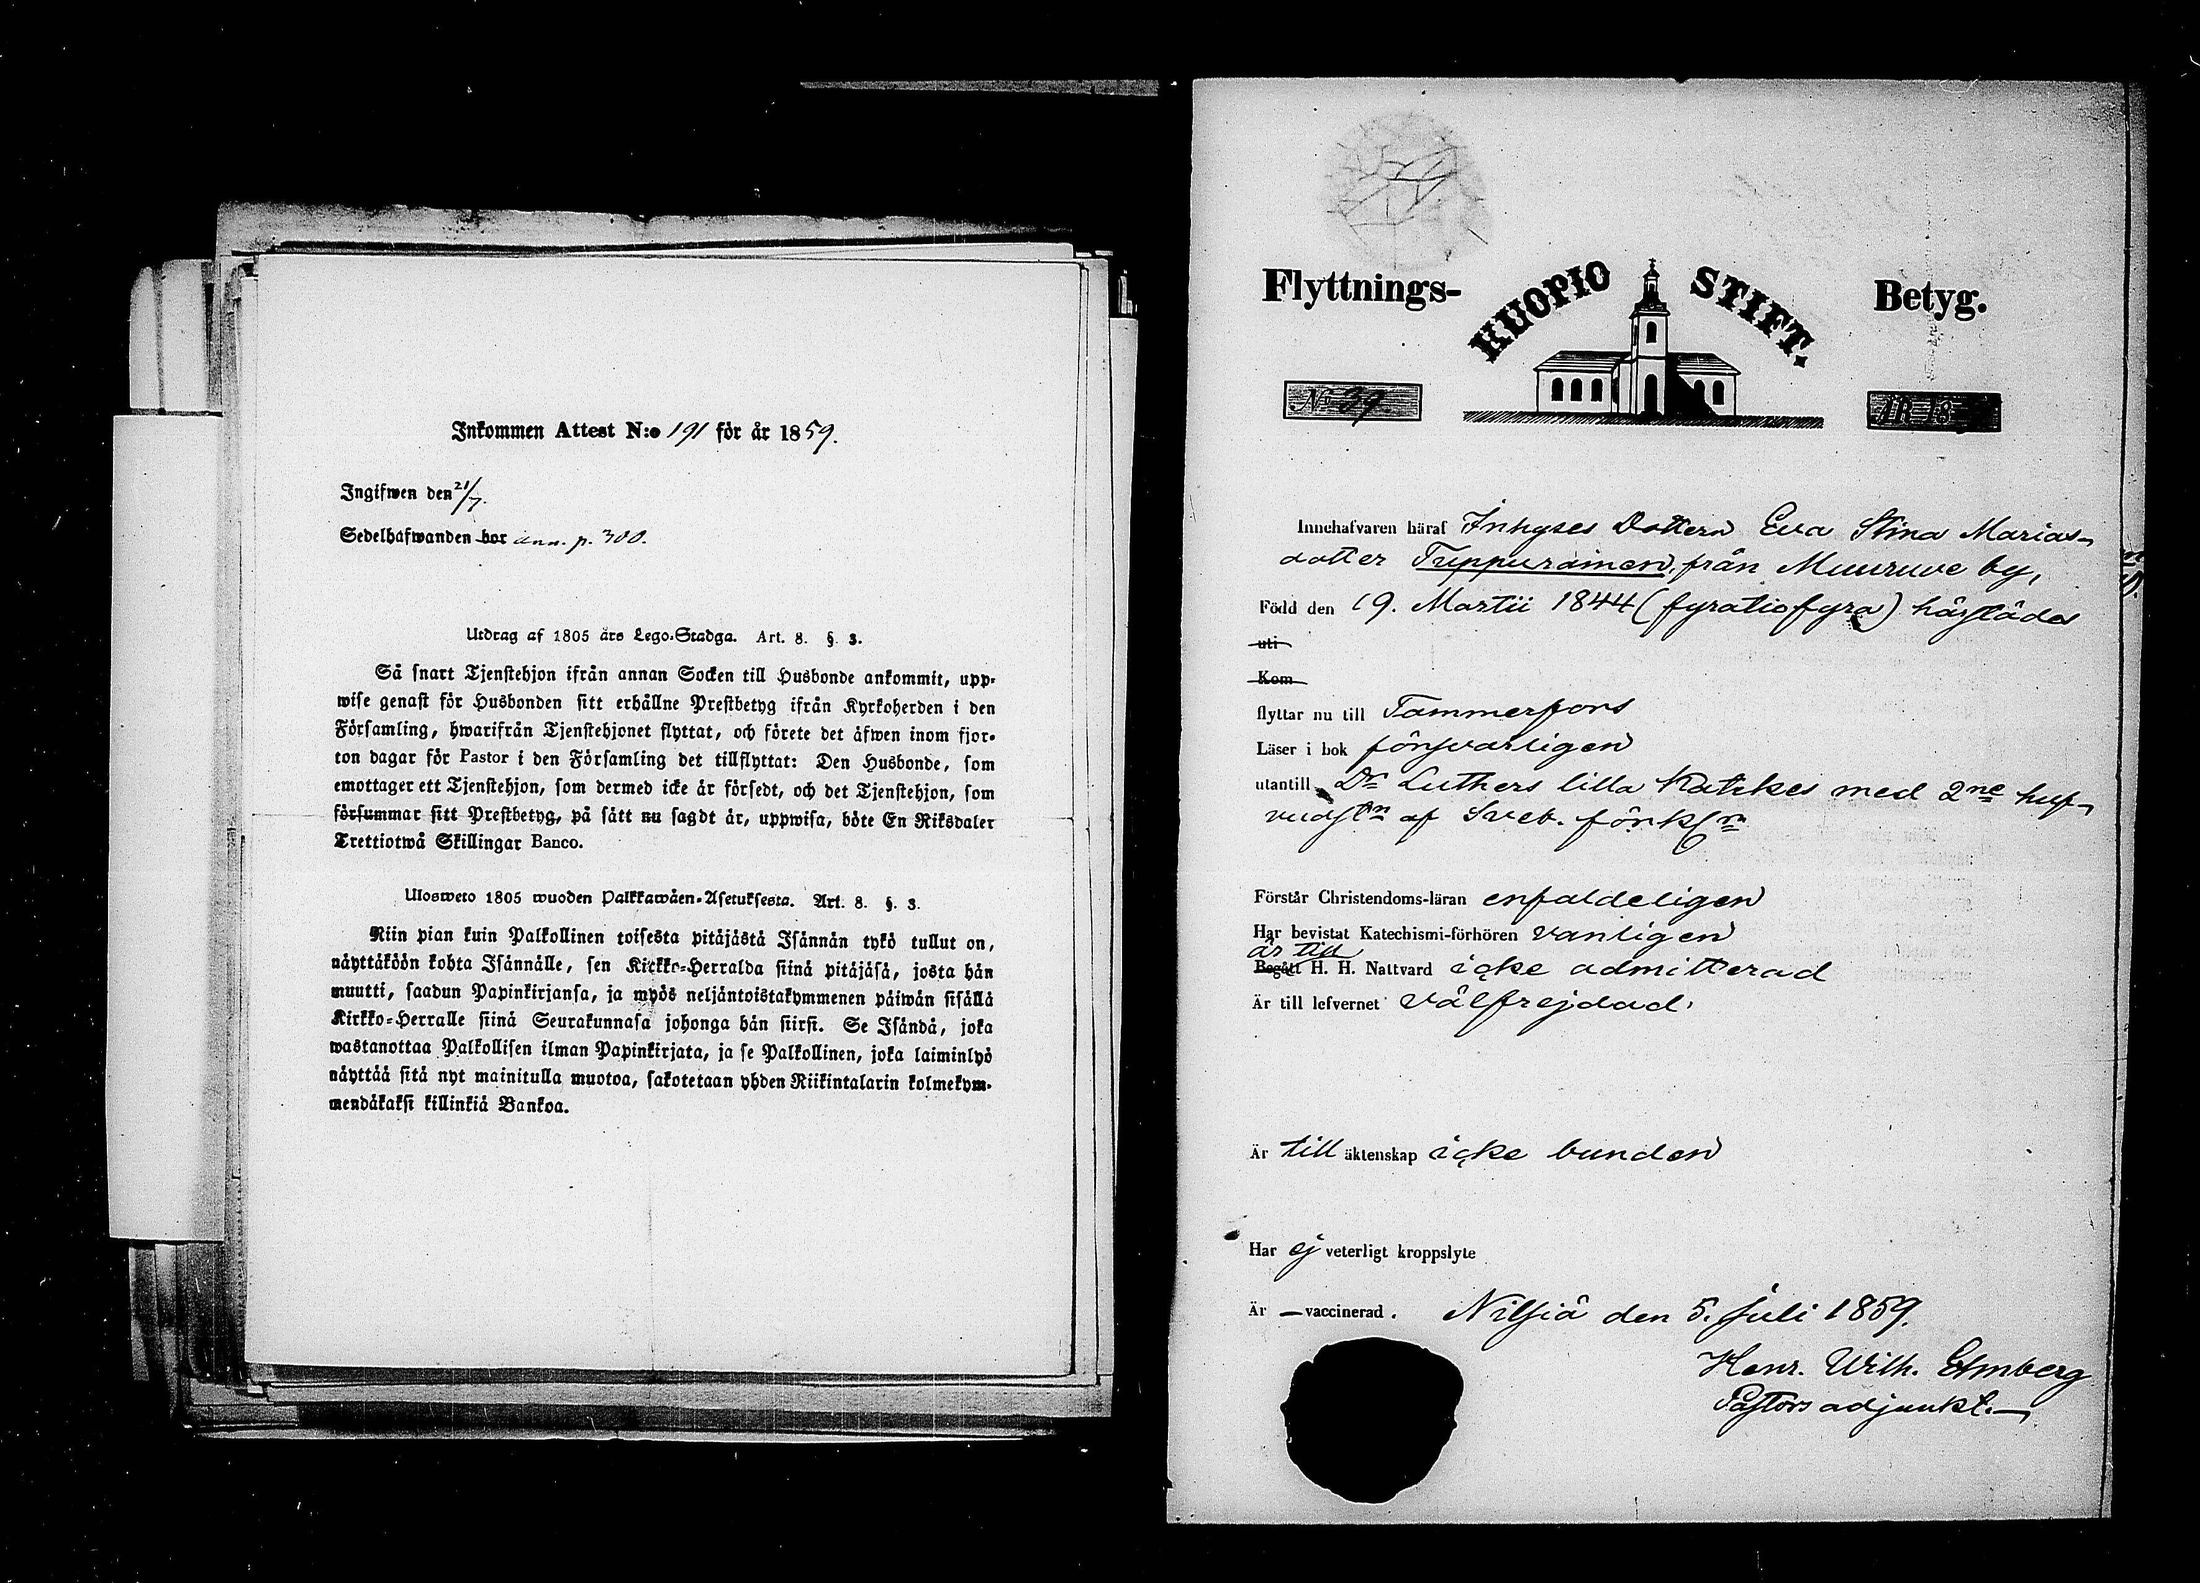 Inkommen Attest N:o 191 för år 1859.
Ingifwen den 21/7.
Sedelhafwanden bor ann. p. 300.
Utdrag af 1805 års Lego-Stadga. Art. 8. §. 3.
Så snart Tjenstehjon ifrån annan Socken till Husbonde ankommit, upp-
wise genast för Husbonden sitt erhållne Prestbetyg ifrån Kyrkoherden i den
Församling, hwarifrån Tjenstehjonet flyttat, och förete det äfwen inom fjor-
ton dagar för Pastor i den Församling det tillflyttat: Den Husbonde, som
emottager ett Tjenstehjon, som dermed icke är försedt, och det Tjenstehjon, som
försummar sitt Prestbetyg, på sätt nu sagdt är, uppwisa, böte En Riksdaler
Trettiotwå Skillingar Banco.
Ulosweto 1805 wuoden Palkkawäen-Asetuksesta. Art. 8. §. 3.
Niin pian kuin Palkollinen toisesta pitäjästä Isännän tykö tullut on,
näyttäköön kohta Isännälle, sen Kirkko-Herralda siinä pitäjäsä, josta hän
muutti, saadun Papinkirjansa, ja myös neljäntoistakymmenen päiwän sisällä
Kirkko-Herralle siinä Seurakunnasa johonga hän siirsi. Se Isändä, joka
wastanottaa Palkollisen ilman Papinkirjata, ja se Palkollinen, joka laiminlyö
näyttää sitä nyt mainitulla muotoa, sakotetaan yhden Riikintalarin kolmekym-
mendäkaksi killinkiä Bankoa.
Flyttnings- KUOPIO STIFT. Betyg.
No 39. ÅR 18
Innehafvaren häraf Inhyses Dottern Eva Stina Marias-
dotter Tuppurainen, från Muuruve by,
Född den 19. Martii 1844 (fyratiofyra) härstädes
uti
Kom
flyttar nu till Tammerfors
Läser i bok försvarligen
utantill Dr Luthers lilla Katekes med 2ne huf-
vudstn af Sveb. förkln
Förstår Christendoms-läran enfaldeligen
Har bevistat Katechismi-förhören vanligen
är till
Begått H. H. Nattvard icke admitterad
Är till lefvernet välfrejdad.
Är till äktenskap icke bunden
Har ej veterligt kroppslyte
Är — vaccinerad. Nilsiä den 5. Juli 1859.
Henr. Wilh. Elmberg
Pastorsadjunkt.